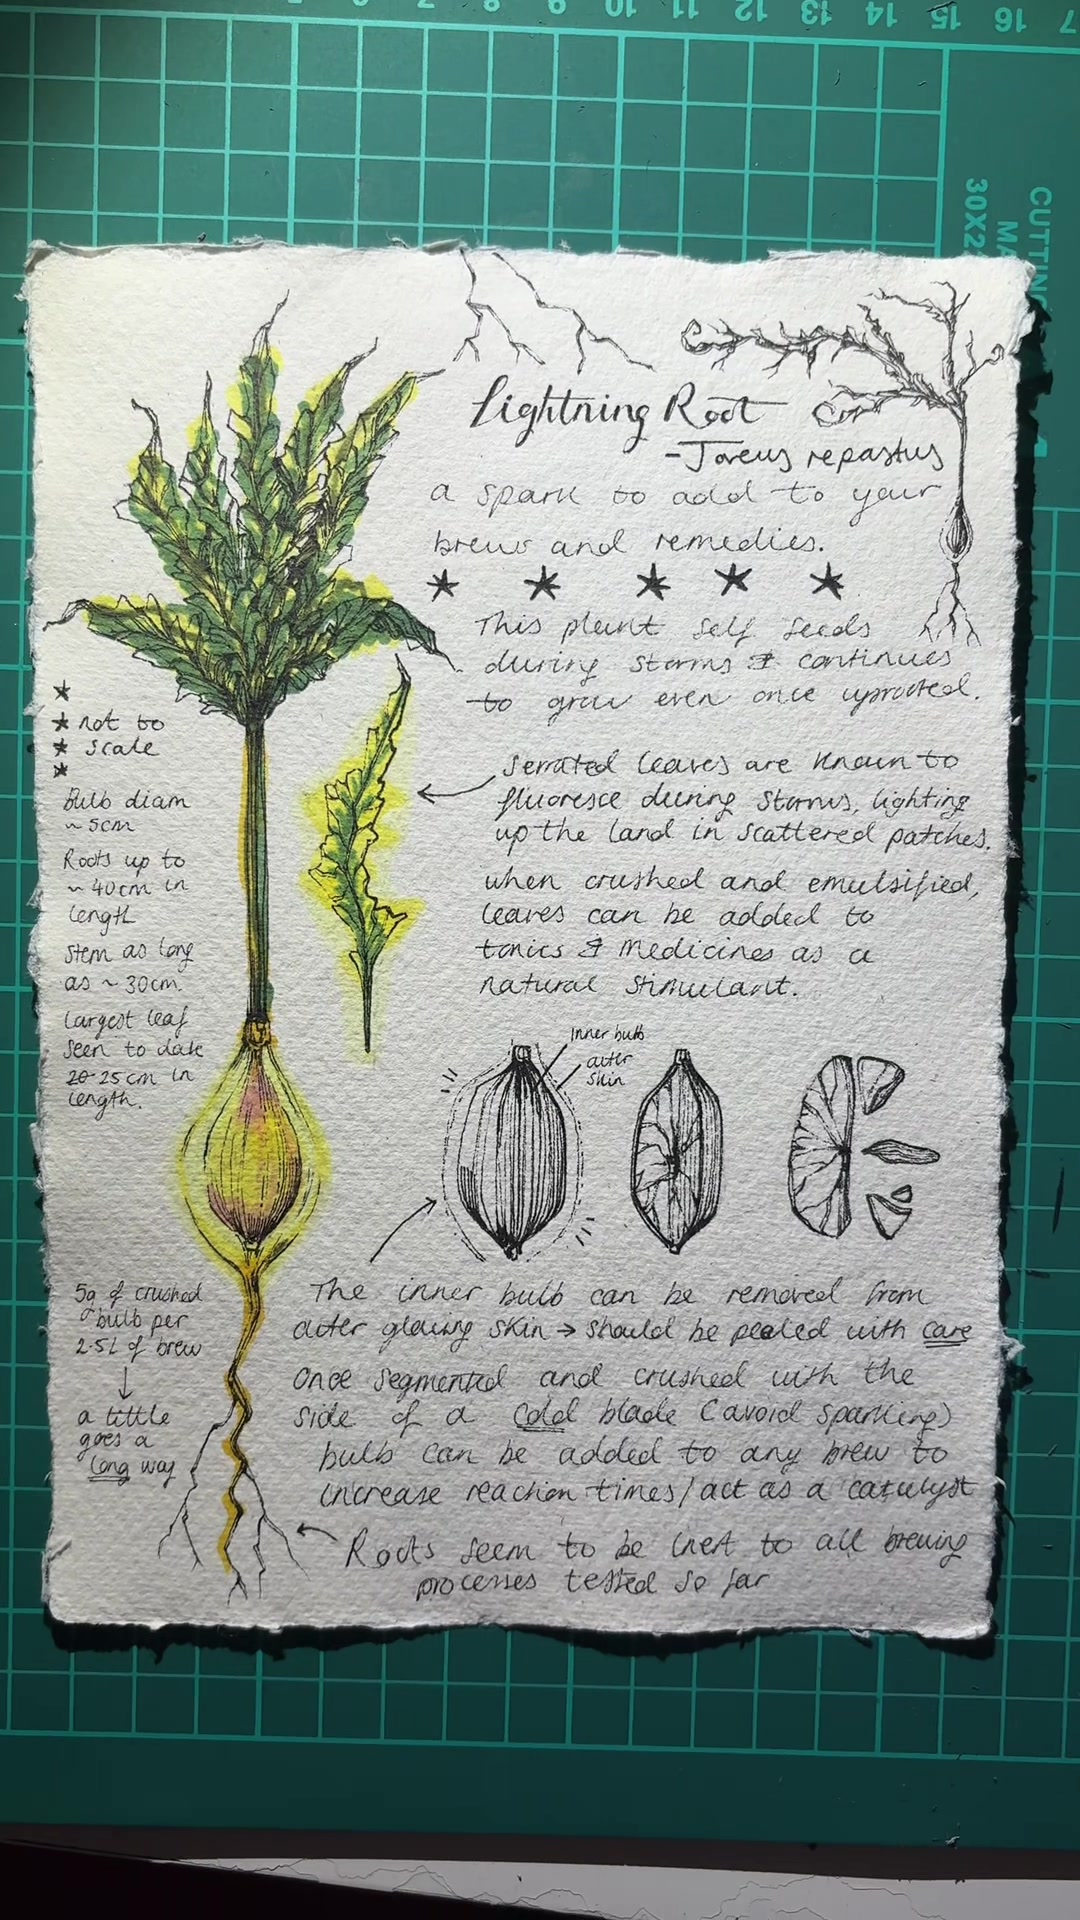 7 8 9 10 11 12 13 14 15 16 17
CUTTING
30X2
Lightning Root
- Joveus repastus
a spark to add to your
brews and remedies.
This plant self seeds
during storms & continues
to grow even once uprooted.
* not to
* scale
Bulb diam
~ 5cm
Roots up to
~ 40cm in
length
Stem as long
as ~ 30cm.
Largest leaf
seen to date
20-25cm in
length.
Serrated leaves are known to
fluoresce during storms, lighting
up the land in scattered patches.
when crushed and emulsified,
leaves can be added to
tonics & medicines as a
natural stimulant.
inner bulb
outer
skin
5g of crushed
bulb per
2.5L of brew
↓
a little
goes a
long way
The inner bulb can be removed from
outer glowing skin → should be peeled with care
Once segmented and crushed with the
side of a cold blade (avoid sparking)
bulb can be added to any brew to
increase reaction times/act as a catalyst
Roots seem to be inert to all brewing
processes tested so far